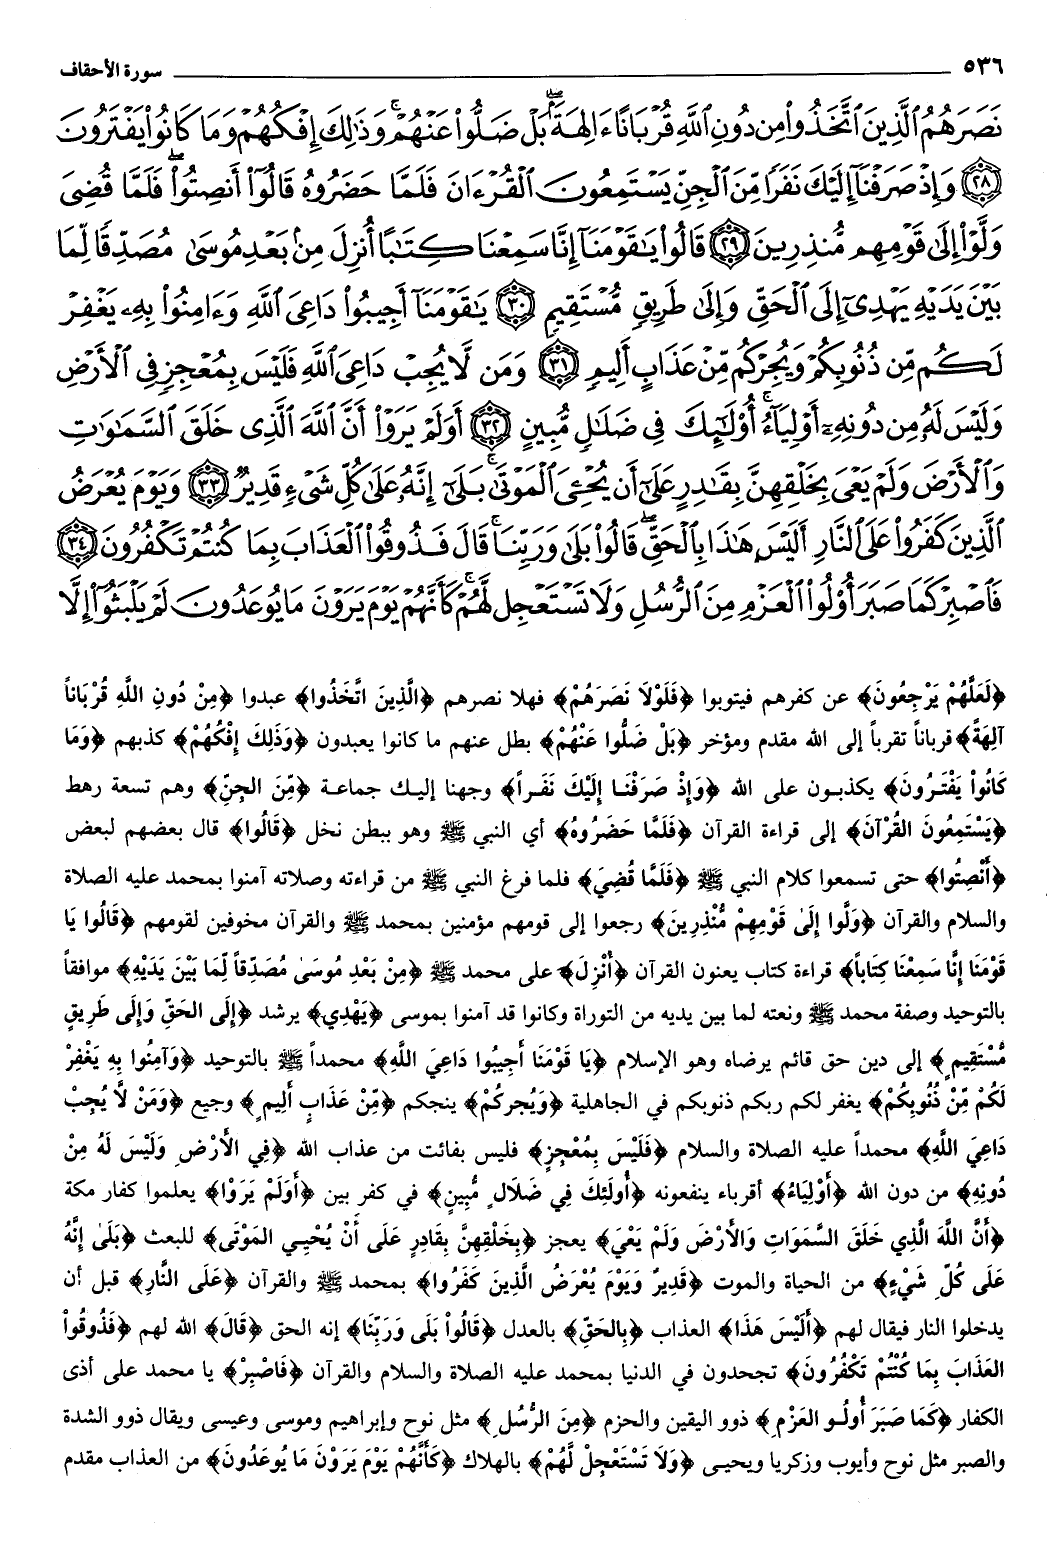 ٥٣٦ سورة الأحقاف
نَصَرَهُمُ ٱلَّذِينَ ٱتَّخَذُوا۟ مِن دُونِ ٱللَّهِ قُرْبَانًا ءَالِهَةًۢ ۖ بَلْ ضَلُّوا۟ عَنْهُمْ ۚ وَذَٰلِكَ إِفْكُهُمْ وَمَا كَانُوا۟ يَفْتَرُونَ
﴿٢٨﴾ وَإِذْ صَرَفْنَآ إِلَيْكَ نَفَرًا مِّنَ ٱلْجِنِّ يَسْتَمِعُونَ ٱلْقُرْءَانَ فَلَمَّا حَضَرُوهُ قَالُوٓا۟ أَنصِتُوا۟ ۖ فَلَمَّا قُضِىَ
وَلَّوْا۟ إِلَىٰ قَوْمِهِم مُّنذِرِينَ ﴿٢٩﴾ قَالُوا۟ يَٰقَوْمَنَآ إِنَّا سَمِعْنَا كِتَٰبًا أُنزِلَ مِنۢ بَعْدِ مُوسَىٰ مُصَدِّقًا لِّمَا
بَيْنَ يَدَيْهِ يَهْدِىٓ إِلَى ٱلْحَقِّ وَإِلَىٰ طَرِيقٍ مُّسْتَقِيمٍ ﴿٣٠﴾ يَٰقَوْمَنَآ أَجِيبُوا۟ دَاعِىَ ٱللَّهِ وَءَامِنُوا۟ بِهِۦ يَغْفِرْ
لَكُم مِّن ذُنُوبِكُمْ وَيُجِرْكُم مِّنْ عَذَابٍ أَلِيمٍ ﴿٣١﴾ وَمَن لَّا يُجِبْ دَاعِىَ ٱللَّهِ فَلَيْسَ بِمُعْجِزٍ فِى ٱلْأَرْضِ
وَلَيْسَ لَهُۥ مِن دُونِهِۦٓ أَوْلِيَآءُ ۚ أُو۟لَٰٓئِكَ فِى ضَلَٰلٍ مُّبِينٍ ﴿٣٢﴾ أَوَلَمْ يَرَوْا۟ أَنَّ ٱللَّهَ ٱلَّذِى خَلَقَ ٱلسَّمَٰوَٰتِ
وَٱلْأَرْضَ وَلَمْ يَعْىَ بِخَلْقِهِنَّ بِقَٰدِرٍ عَلَىٰٓ أَن يُحْۦِىَ ٱلْمَوْتَىٰ ۚ بَلَىٰٓ إِنَّهُۥ عَلَىٰ كُلِّ شَىْءٍ قَدِيرٌ ﴿٣٣﴾ وَيَوْمَ يُعْرَضُ
ٱلَّذِينَ كَفَرُوا۟ عَلَى ٱلنَّارِ أَلَيْسَ هَٰذَا بِٱلْحَقِّ ۖ قَالُوا۟ بَلَىٰ وَرَبِّنَا ۚ قَالَ فَذُوقُوا۟ ٱلْعَذَابَ بِمَا كُنتُمْ تَكْفُرُونَ ﴿٣٤﴾
فَٱصْبِرْ كَمَا صَبَرَ أُو۟لُوا۟ ٱلْعَزْمِ مِنَ ٱلرُّسُلِ وَلَا تَسْتَعْجِل لَّهُمْ ۚ كَأَنَّهُمْ يَوْمَ يَرَوْنَ مَا يُوعَدُونَ لَمْ يَلْبَثُوٓا۟ إِلَّا
﴿لَعَلَّهُمْ يَرْجِعُونَ﴾ عن كفرهم فيتوبوا ﴿فَلَوْلَا نَصَرَهُمْ﴾ فهلا نصرهم ﴿الَّذِينَ اتَّخَذُوا﴾ عبدوا ﴿مِنْ دُونِ اللَّهِ قُرْبَاناً
آلِهَةً﴾ قرباناً تقرباً إلى الله مقدم ومؤخر ﴿بَلْ ضَلُّوا عَنْهُمْ﴾ بطل عنهم ما كانوا يعبدون ﴿وَذَلِكَ إِفْكُهُمْ﴾ كذبهم ﴿وَمَا
كَانُوا يَفْتَرُونَ﴾ يكذبون على الله ﴿وَإِذْ صَرَفْنَا إِلَيْكَ نَفَراً﴾ وجهنا إليك جماعة ﴿مِّنَ الجِنِّ﴾ وهم تسعة رهط
﴿يَسْتَمِعُونَ القُرْآنَ﴾ إلى قراءة القرآن ﴿فَلَمَّا حَضَرُوهُ﴾ أي النبي ﷺ وهو ببطن نخل ﴿قَالُوا﴾ قال بعضهم لبعض
﴿أَنْصِتُوا﴾ حتى تسمعوا كلام النبي ﷺ ﴿فَلَمَّا قُضِيَ﴾ فلما فرغ النبي ﷺ من قراءته وصلاته آمنوا بمحمد عليه الصلاة
والسلام والقرآن ﴿وَلَّوا إِلَىٰ قَوْمِهِمْ مُّنْذِرِينَ﴾ رجعوا إلى قومهم مؤمنين بمحمد ﷺ والقرآن مخوفين لقومهم ﴿قَالُوا يَا
قَوْمَنَا إِنَّا سَمِعْنَا كِتَاباً﴾ قراءة كتاب يعنون القرآن ﴿أُنْزِلَ﴾ على محمد ﷺ ﴿مِنْ بَعْدِ مُوسَىٰ مُصَدِّقاً لِّمَا بَيْنَ يَدَيْهِ﴾ موافقاً
بالتوحيد وصفة محمد ﷺ ونعته لما بين يديه من التوراة وكانوا قد آمنوا بموسى ﴿يَهْدِي﴾ يرشد ﴿إِلَى الحَقِّ وَإِلَى طَرِيقٍ
مُّسْتَقِيمٍ﴾ إلى دين حق قائم يرضاه وهو الإسلام ﴿يَا قَوْمَنَا أَجِيبُوا دَاعِيَ اللَّهِ﴾ محمداً ﷺ بالتوحيد ﴿وَآمِنُوا بِهِ يَغْفِرْ
لَكُمْ مِّنْ ذُنُوبِكُمْ﴾ يغفر لكم ربكم ذنوبكم في الجاهلية ﴿وَيُجِرْكُمْ﴾ ينجكم ﴿مِّنْ عَذَابٍ أَلِيمٍ﴾ وجيع ﴿وَمَنْ لاَّ يُجِبْ
دَاعِيَ اللَّهِ﴾ محمداً عليه الصلاة والسلام ﴿فَلَيْسَ بِمُعْجِزٍ﴾ فليس بفائت من عذاب الله ﴿فِي الأَرْضِ وَلَيْسَ لَهُ مِنْ
دُونِهِ﴾ من دون الله ﴿أَوْلِيَاءُ﴾ أقرباء ينفعونه ﴿أُولَئِكَ فِي ضَلَالٍ مُّبِينٍ﴾ في كفر بين ﴿أَوَلَمْ يَرَوْا﴾ يعلموا كفار مكة
﴿أَنَّ اللَّهَ الَّذِي خَلَقَ السَّمَوَاتِ وَالأَرْضَ وَلَمْ يَعْيَ﴾ يعجز ﴿بِخَلْقِهِنَّ بِقَادِرٍ عَلَى أَنْ يُحْيِيَ المَوْتَى﴾ للبعث ﴿بَلَىٰ إِنَّهُ
عَلَى كُلِّ شَيْءٍ﴾ من الحياة والموت ﴿قَدِيرٌ وَيَوْمَ يُعْرَضُ الَّذِينَ كَفَرُوا﴾ بمحمد ﷺ والقرآن ﴿عَلَى النَّارِ﴾ قبل أن
يدخلوا النار فيقال لهم ﴿أَلَيْسَ هَذَا﴾ العذاب ﴿بِالحَقِّ﴾ بالعدل ﴿قَالُواْ بَلَى وَرَبِّنَا﴾ إنه الحق ﴿قَالَ﴾ الله لهم ﴿فَذُوقُواْ
العَذَابَ بِمَا كُنْتُمْ تَكْفُرُونَ﴾ تجحدون في الدنيا بمحمد عليه الصلاة والسلام والقرآن ﴿فَاصْبِرْ﴾ يا محمد على أذى
الكفار ﴿كَمَا صَبَرَ أُولُو العَزْمِ﴾ ذوو اليقين والحزم ﴿مِنَ الرُّسُلِ﴾ مثل نوح وإبراهيم وموسى وعيسى ويقال ذوو الشدة
والصبر مثل نوح وأيوب وزكريا ويحيى ﴿وَلاَ تَسْتَعْجِلْ لَّهُمْ﴾ بالهلاك ﴿كَأَنَّهُمْ يَوْمَ يَرَوْنَ مَا يُوعَدُونَ﴾ من العذاب مقدم